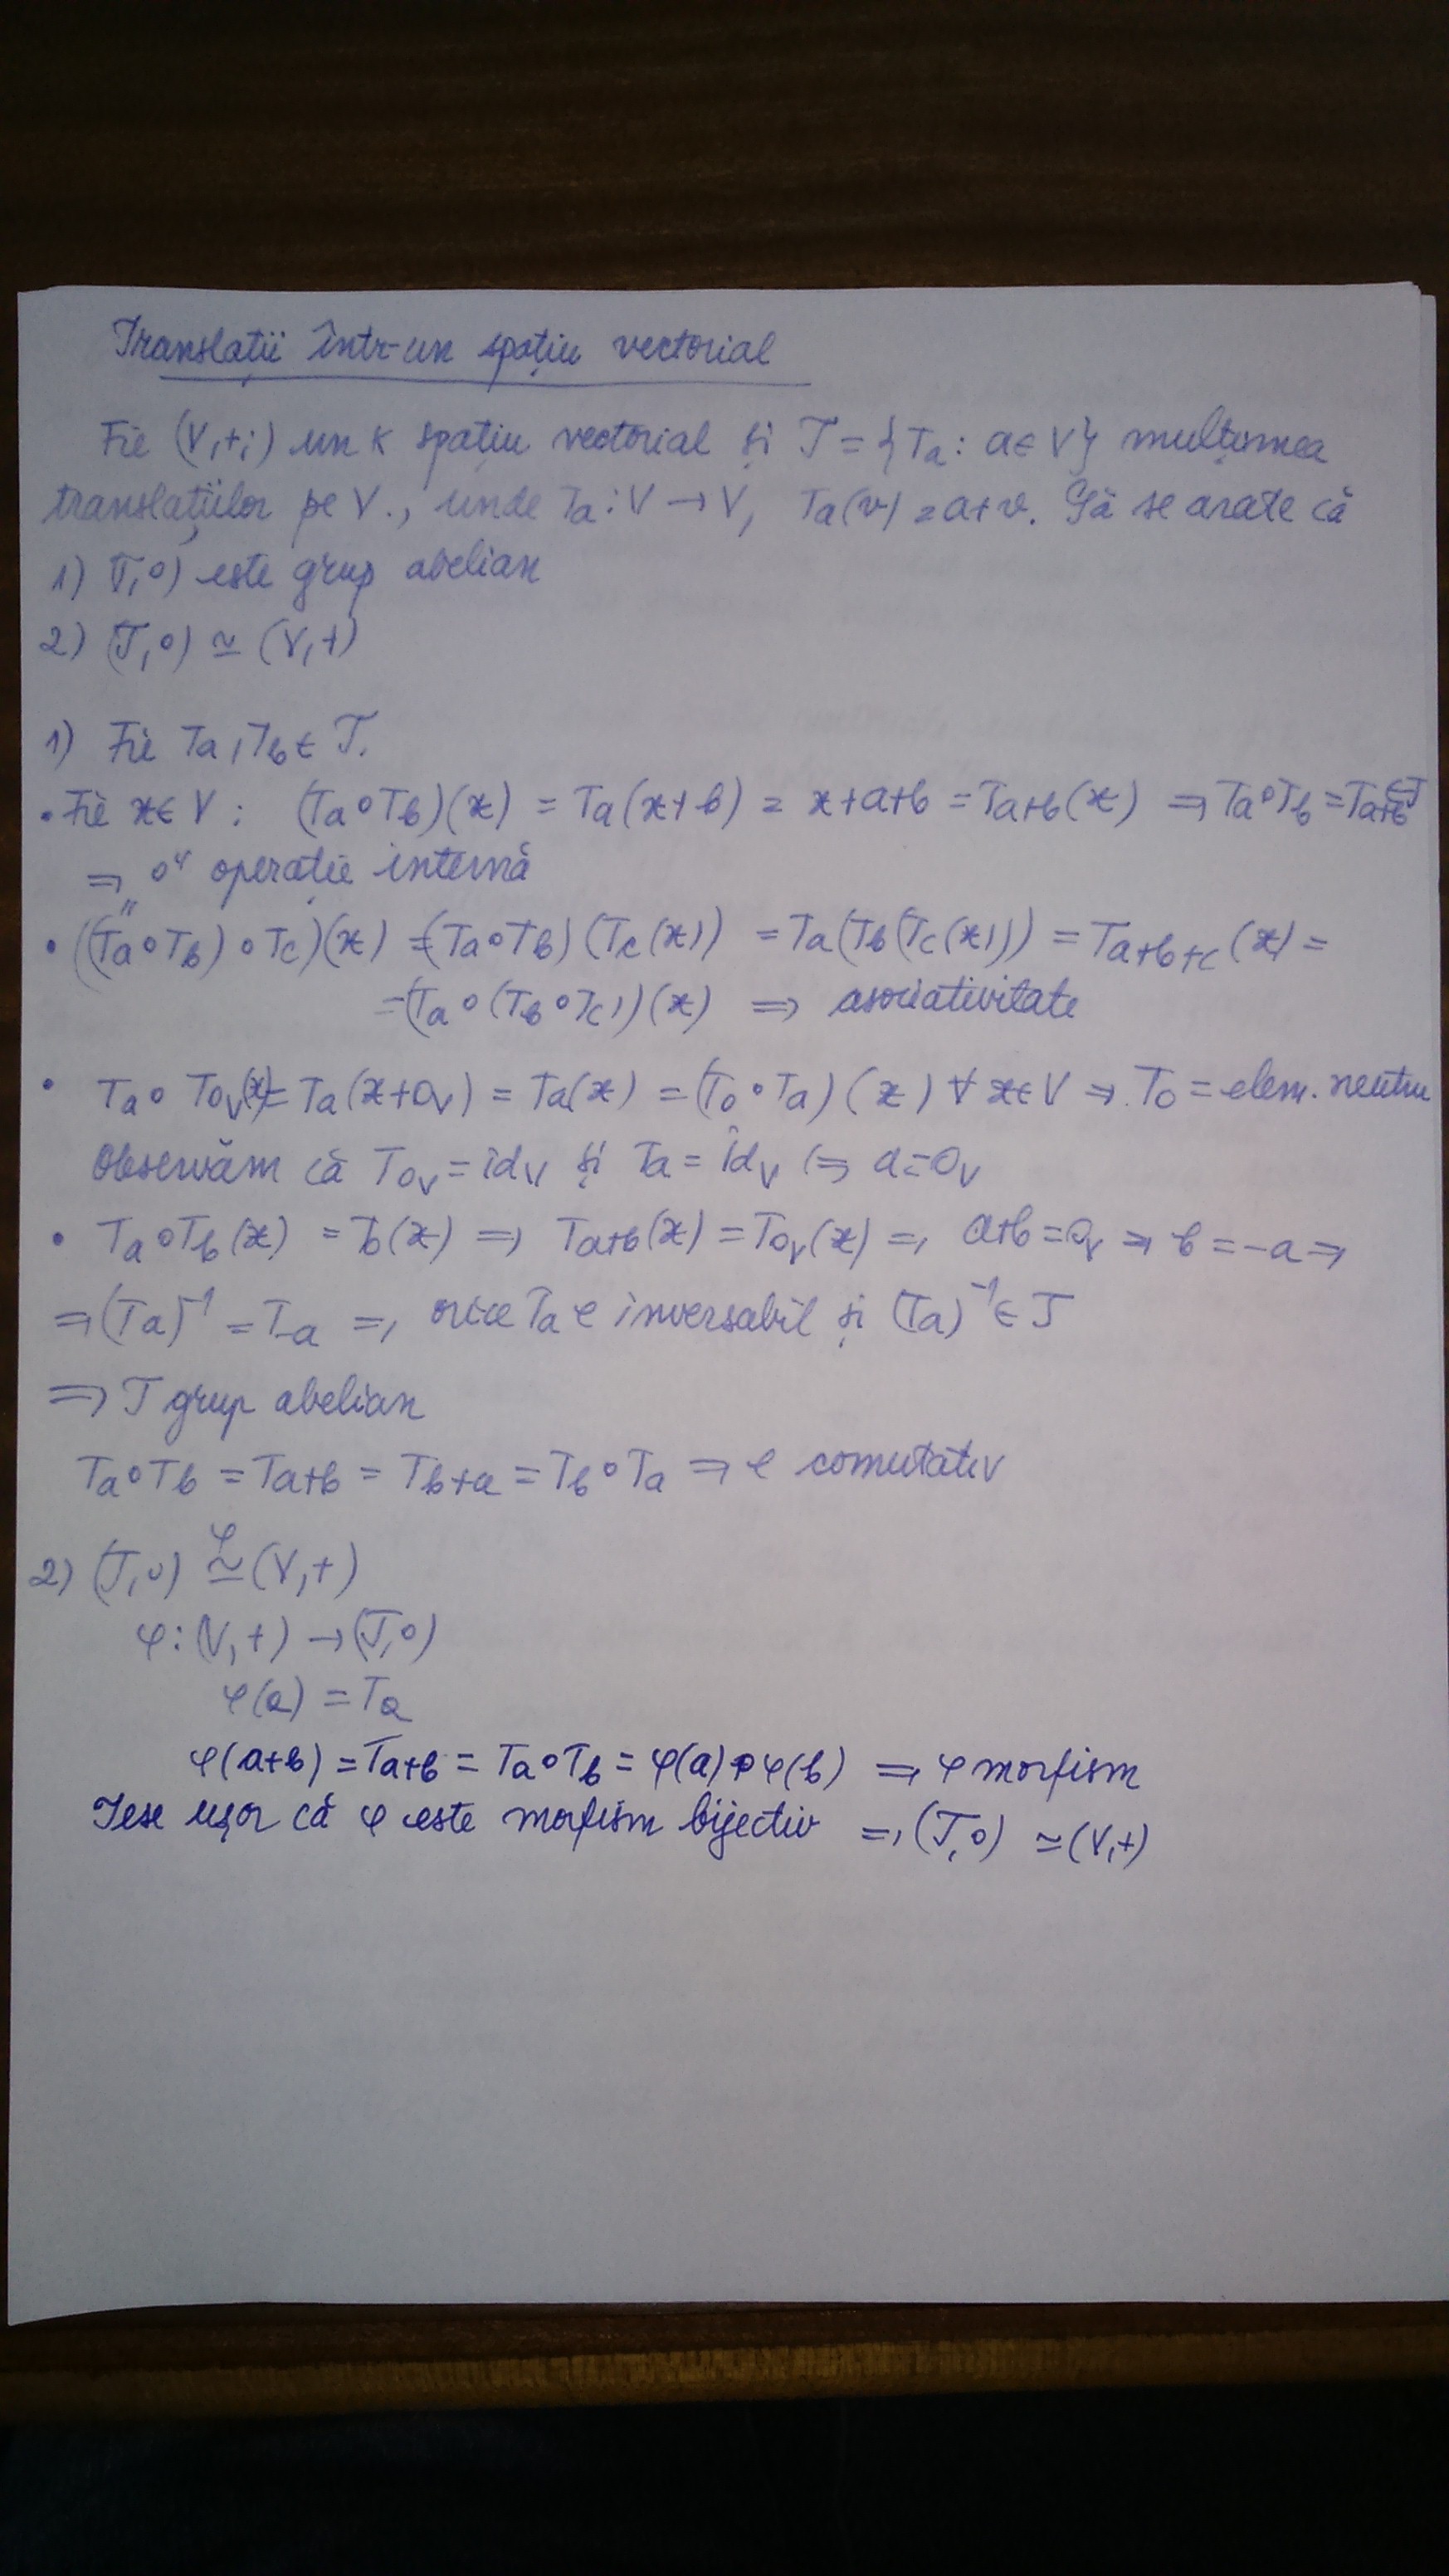 Translații într-un spațiu vectorial
Fie (V,+,·) un K spațiu vectorial și T = {Ta : a∈V} mulțimea
translațiilor pe V., unde Ta : V → V, Ta(v) = a+v. Să se arate că
1) (T,∘) este grup abelian
2) (T,∘) ≃ (V,+)
1) Fie Ta, Tb ∈ T.
• Fie x∈V : (Ta∘Tb)(x) = Ta(x+b) = x+a+b = Ta+b(x) ⇒ Ta∘Tb = Ta+b ∈ T
⇒ „∘" operație internă
• ((Ta∘Tb)∘Tc)(x) = (Ta∘Tb)(Tc(x)) = Ta(Tb(Tc(x))) = Ta+b+c(x) =
= (Ta∘(Tb∘Tc))(x) ⇒ asociativitate
• Ta∘T0V(x) = Ta(x+0V) = Ta(x) = (T0∘Ta)(x) ∀ x∈V ⇒ T0 = elem. neutru
Observăm că T0V = idV și Ta = idV ⇔ a=0V
• Ta∘Tb(x) = T0(x) ⇒ Ta+b(x) = T0V(x) ⇒ a+b=0V ⇒ b=-a ⇒
⇒ (Ta)⁻¹ = T-a ⇒ orice Ta e inversabil și (Ta)⁻¹ ∈ T
⇒ T grup abelian
Ta∘Tb = Ta+b = Tb+a = Tb∘Ta ⇒ e comutativ
2) (T,∘) ≃φ (V,+)
φ : (V,+) → (T,∘)
φ(a) = Ta
φ(a+b) = Ta+b = Ta∘Tb = φ(a)∘φ(b) ⇒ φ morfism
Iese ușor că φ este morfism bijectiv ⇒ (T,∘) ≃ (V,+)